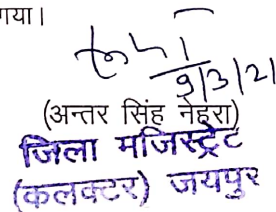 गया।
9/3/21
(अन्तर सिंह नेहरा)
जिला मजिस्ट्रेट
(कलक्टर) जयपुर